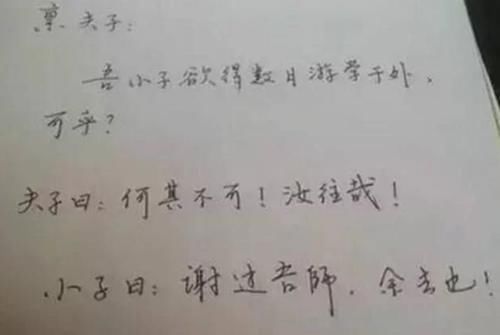 禀夫子：
吾小子欲得数日游学于外，
可乎？
夫子曰：何其不可！汝往哉！
小子曰：谢过吾師，余去也！